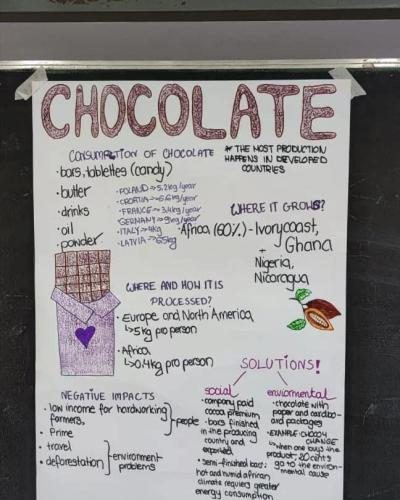 CHOCOLATE
CONSUMPTION OF CHOCOLATE
• bars, tablettes (candy)
• butter
• drinks
• oil
• powder
• POLAND → 5.2kg/year
• CROATIA → 6.6kg/year
• FRANCE → 3.4kg/year
• GERMANY → 9kg/year
• ITALY → 4kg
• LATVIA → 6.5kg
* THE MOST PRODUCTION
HAPPENS IN DEVELOPED
COUNTRIES
WHERE IT GROWS?
• Africa (60%) - Ivorycoast,
Ghana
+
Nigeria,
Nicaragua
WHERE AND HOW IT IS
PROCESSED?
• Europe and North America
↳ 5kg pro person
• Africa
↳ 0.4kg pro person
NEGATIVE IMPACTS
• low income for hardworking
farmers,
• Prime
people
• travel
• deforestation
environment
problems
SOLUTIONS!
social
• company paid
cocoa premium
• bars finished
in the producing
country and
exported
• semi-finished bars:
hot and humid african
climate requires greater
energy consumption
enviormental
• chocolate with
paper and cardbo-
ard packages
• EXAMPLE: CHOCO4
CHANGE
↳ when one buys the
product, 20 cents
go to the environ-
mental cause